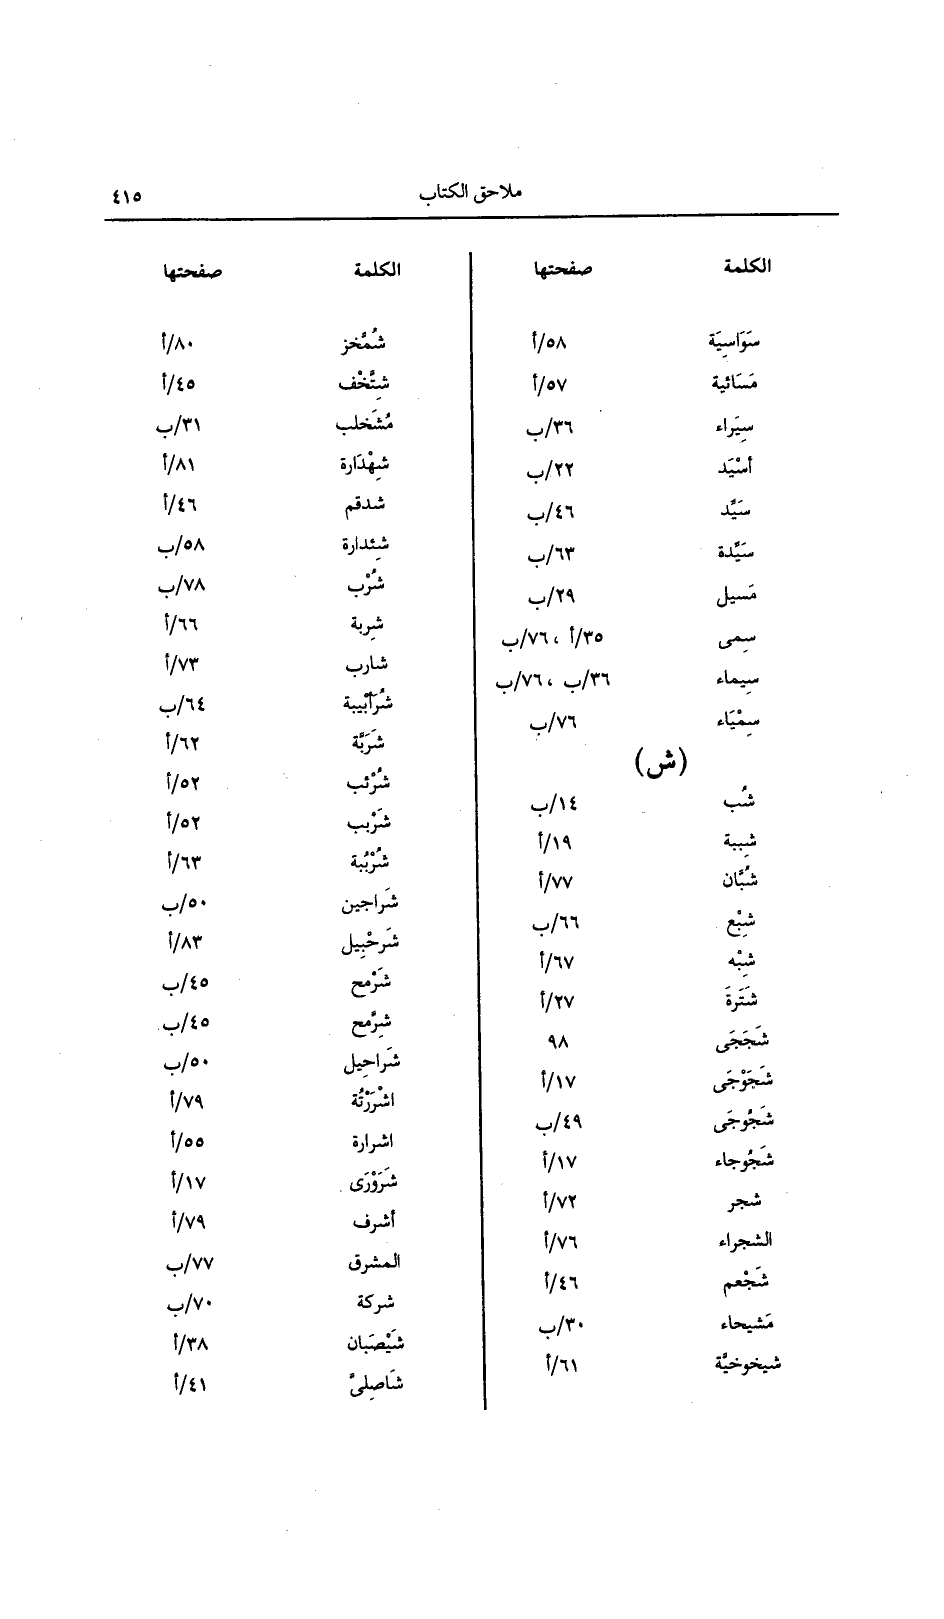 ملاحق الكتاب ٤١٥
الكلمة صفحتها
سَوَاسِيَة ٥٨/أ
مَسَائية ٥٧/أ
سِيَراء ٣٦/ب
أسْيَد ٢٢/ب
سَيِّد ٤٦/ب
سَيِّدة ٦٣/ب
مَسيل ٢٩/ب
سِمى ٣٥/أ ، ٧٦/ب
سيماء ٣٦/ب ، ٧٦/ب
سِمْيَاء ٧٦/ب
(ش)
شُب ١٤/ب
شبيبة ١٩/أ
شُبَّان ٧٧/أ
شِبْع ٦٦/ب
شِبْه ٦٧/أ
شَتَرةَ ٢٧/أ
شَجَجَى ٩٨
شَجَوْجَى ١٧/أ
شَجُوجَى ٤٩/ب
شَجُوجاء ١٧/أ
شجر ٧٢/أ
الشجراء ٧٦/أ
شَجْعم ٤٦/أ
مَشيحاء ٣٠/ب
شيخوخيَّة ٦١/أ
الكلمة صفحتها
شُمَّخز ٨٠/أ
شِنَّخْف ٤٥/أ
مُشَخلب ٣١/ب
شِهْدَارة ٨١/أ
شدقم ٤٦/أ
شِئدارة ٥٨/ب
شُرْب ٧٨/ب
شربة ٦٦/أ
شارب ٧٣/أ
شُرَأبْيبة ٦٤/ب
شَرَبَّة ٦٢/أ
شُرْئب ٥٢/أ
شَرْبب ٥٢/أ
شُرْبُبة ٦٣/أ
شَراجين ٥٠/ب
شَرحْبيل ٨٣/أ
شَرْمح ٤٥/ب
شِرَّمح ٤٥/ب
شَراحيل ٥٠/ب
اشْرَرْتُة ٧٩/أ
اشرارة ٥٥/أ
شَرَوْرَى ١٧/أ
أشرف ٧٩/أ
المشرق ٧٧/ب
شركة ٧٠/ب
شَيْصَبان ٣٨/أ
شَاصِلىَّ ٤١/أ